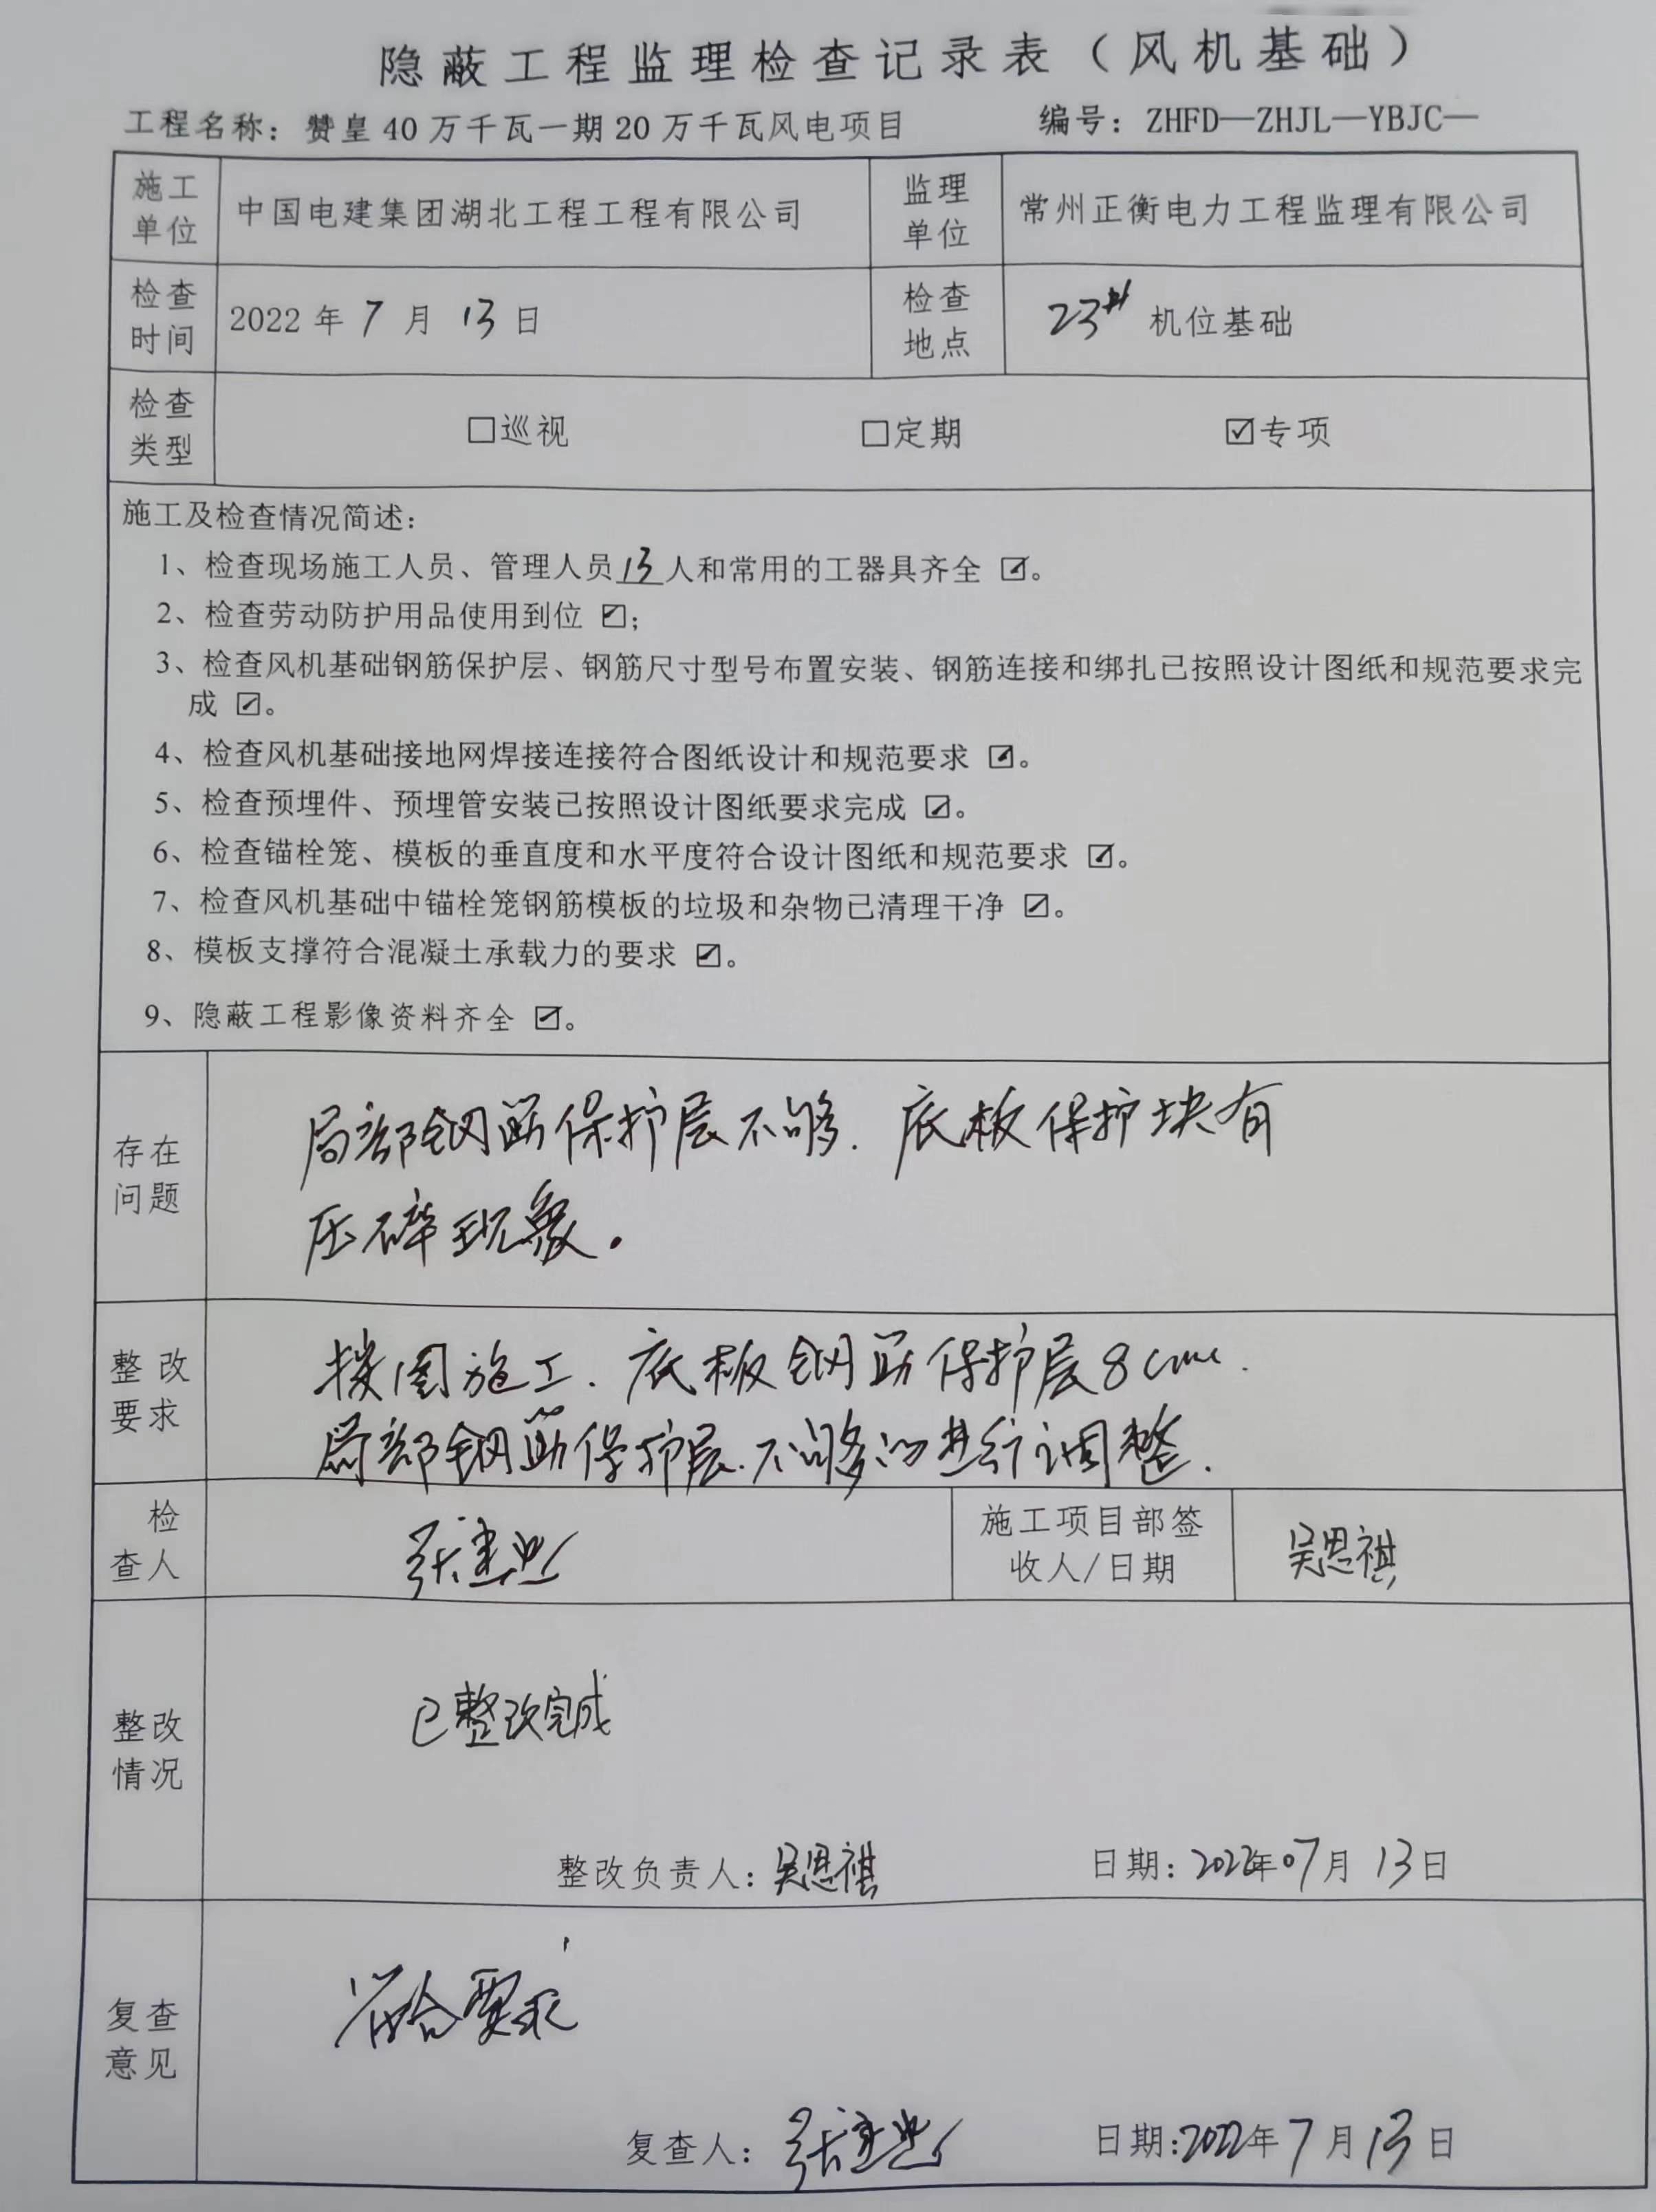 隐蔽工程监理检查记录表（风机基础）
工程名称：赞皇40万千瓦一期20万千瓦风电项目 编号：ZHFD—ZHJL—YBJC—
施工单位 中国电建集团湖北工程工程有限公司 监理单位 常州正衡电力工程监理有限公司
检查时间 2022年7月13日 检查地点 23# 机位基础
检查类型 □巡视 □定期 ☑专项
施工及检查情况简述：
1、检查现场施工人员、管理人员13人和常用的工器具齐全 ☑。
2、检查劳动防护用品使用到位 ☑；
3、检查风机基础钢筋保护层、钢筋尺寸型号布置安装、钢筋连接和绑扎已按照设计图纸和规范要求完
成 ☑。
4、检查风机基础接地网焊接连接符合图纸设计和规范要求 ☑。
5、检查预埋件、预埋管安装已按照设计图纸要求完成 ☑。
6、检查锚栓笼、模板的垂直度和水平度符合设计图纸和规范要求 ☑。
7、检查风机基础中锚栓笼钢筋模板的垃圾和杂物已清理干净 ☑。
8、模板支撑符合混凝土承载力的要求 ☑。
9、隐蔽工程影像资料齐全 ☑。
存在问题 局部钢筋保护层不够. 底板保护块有
压碎现象。
整改要求 按图施工. 底板钢筋保护层8cm.
局部钢筋保护层.不够的进行调整.
检查人 张建业 施工项目部签收人/日期 吴思祺
整改情况 已整改完成
整改负责人：吴思祺 日期：2022年07月13日
复查意见 符合要求
复查人：张建业 日期：2022年7月13日